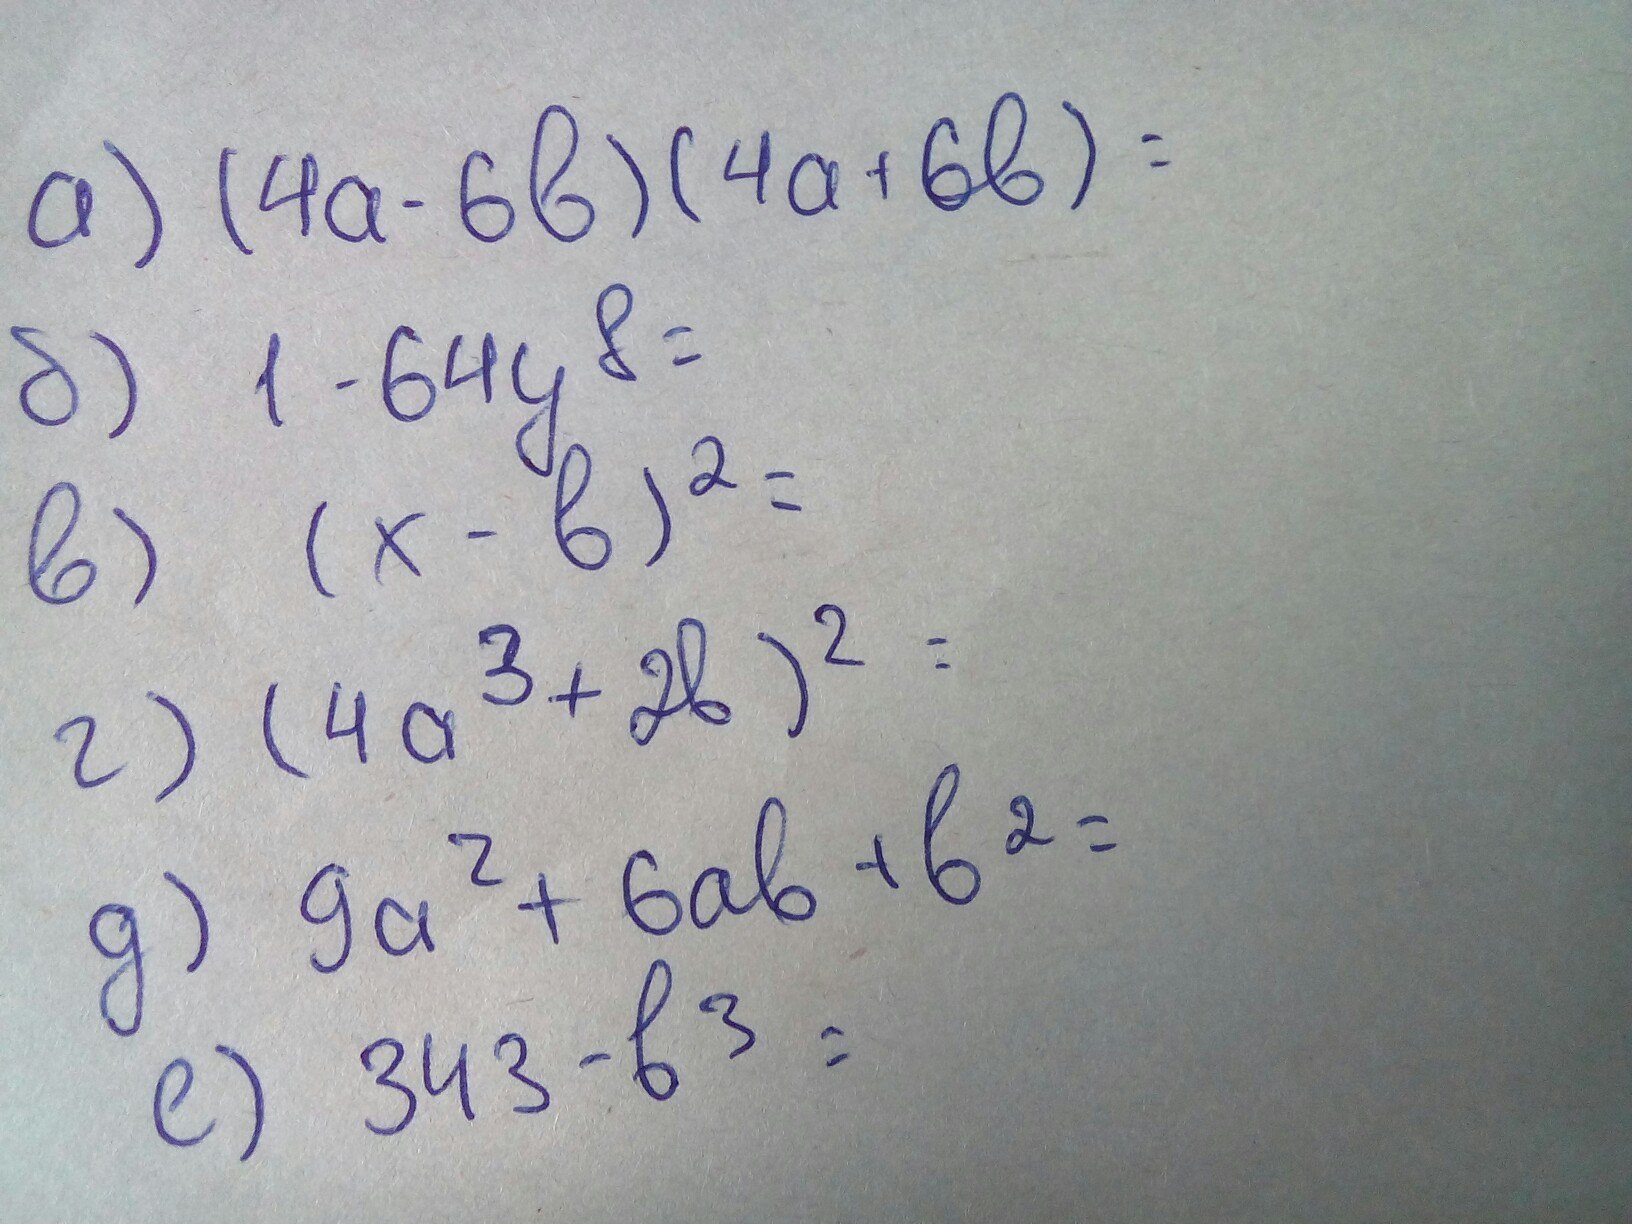 а) (4a-6b)(4a+6b)=
б) 1-64y⁸=
в) (x-b)²=
г) (4a³+2b)²=
д) 9a²+6ab+b²=
е) 343-b³=